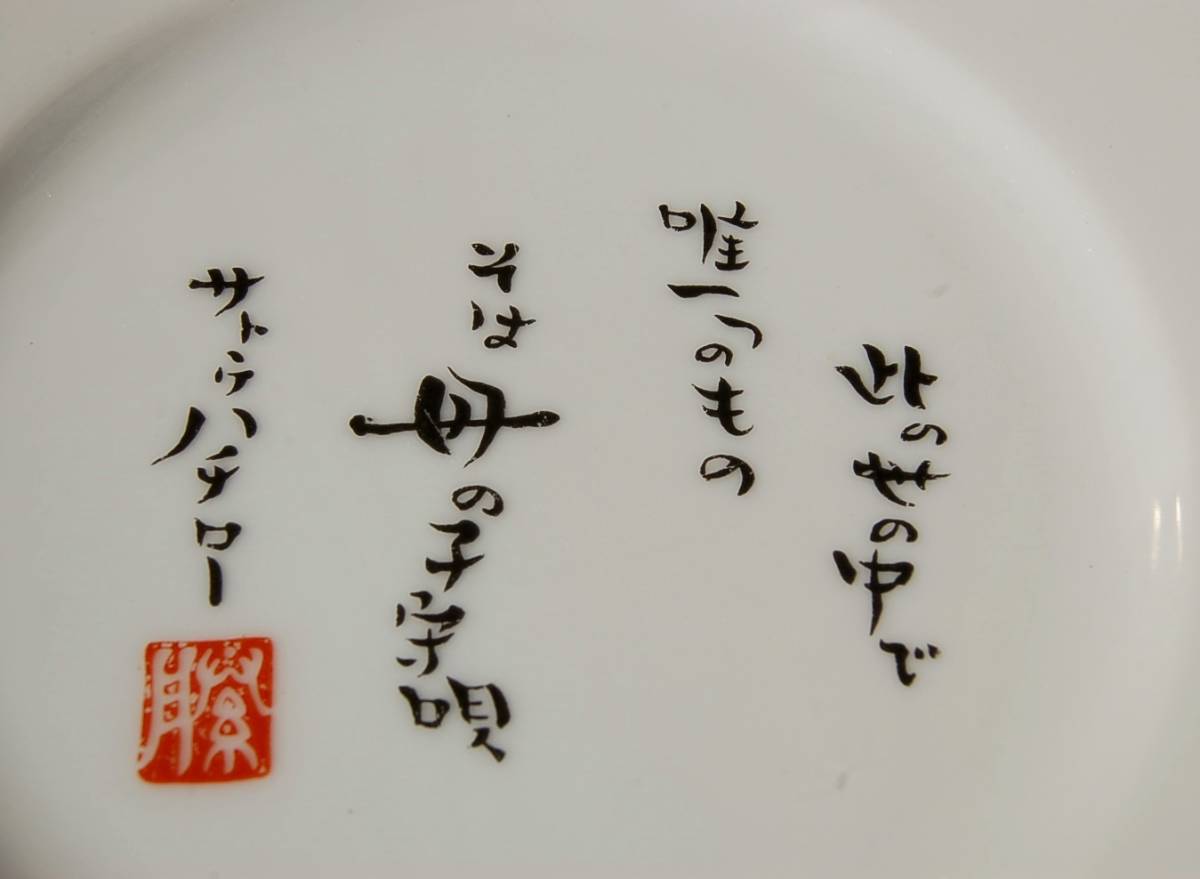 此の世の中で
唯一つのもの
そは母の子守唄
サトウハチロー